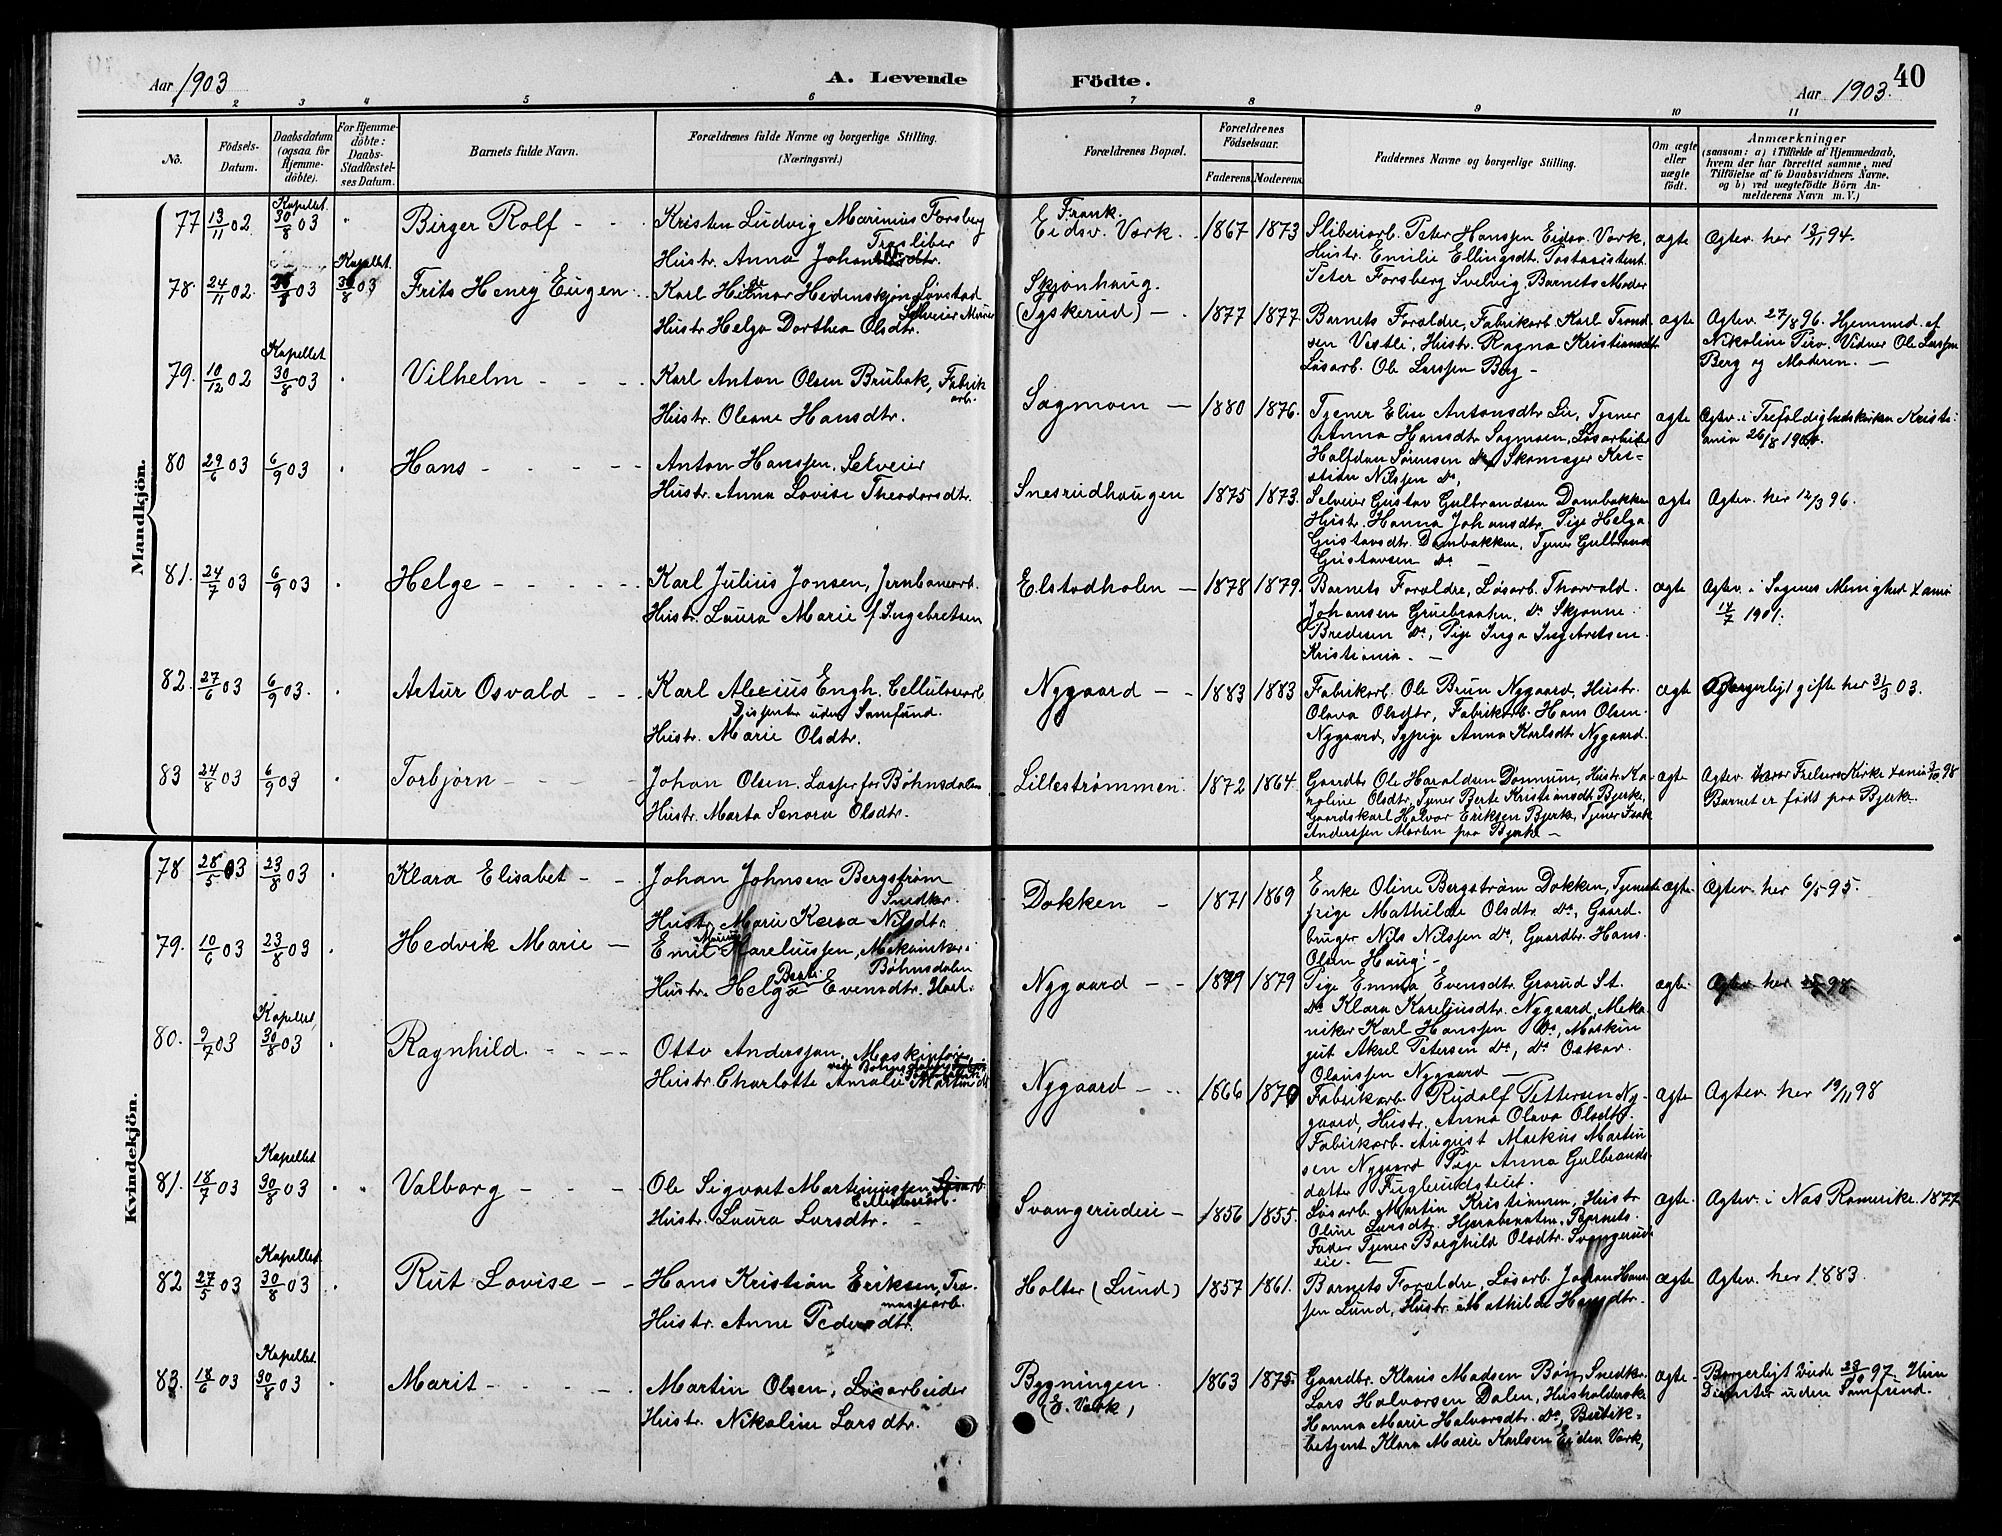 Aar 1903
A. Levende
Födte.
Aar 1903.
40
1 2 3 4 5 6 7 8 9 10 11
No.
Födsels-
Datum.
Daabsdatum
(ogsaa for
Hjemme-
döbte).
For Hjemme-
döbte:
Daabs-
Stadfæstel-
ses Datum.
Barnets fulde Navn.
Forældrenes fulde Navne og borgerlige Stilling.
(Næringsvei.)
Forældrenes Bopæl.
Forældrenes
Födselsaar.
Faderens. Moderens.
Faddernes Navne og borgerlige Stilling.
Om ægte
eller
uægte
födt.
Anmærkninger
(saasom: a) i Tilfælde af Hjemmedaab,
hvem der har forrettet samme, med
Tilföielse af to Daabsvidners Navne.
og b) ved uægtefödte Börn An-
melderens Navn m. V.)
Mandkjön.
77 13/11 02 Kapellet 30/8 03
Birger Rolf
Kristen Ludvig Marinius Forsberg
Træsliber
Hustr. Anna
E. Frank.
Eidsv. Værk. 1867 1873
Sliberiarb. Peter Hanssen Eidsv. Værk,
Hustr. Emilie Ellingsdtr. Postassistent
Peter Forsberg Svelvig, Barnets Moder
ægte
Ægtev. her 13/11 94.
78. 24/11 02. 03 Kapellet. 30/8 03
Frits Henry Eugen
Karl Hilmar Hedenskjöng Løvstad
Selveier Murer
Hustr. Helga Dorthea Olsdtr.
Skjønhaug.
(Tyskerud) 1877 1877.
Barnets Forældre, Fabrikarb. Karl Trond-
sen Vestli, Hustr. Ragna Kristiansdtr.
Løsarb. Ole Larssen Berg
ægte
Ægtev. 27/8 96. Hjemmed. af
Nikoline Vidner Ole Larssen
Berg og Moderen.
79. 10/12 02 Kapellet 30/8 03
Vilhelm
Karl Anton Olsen Brubak, Fabrik
arb.
Hustr. Oleane Hansdtr.
Sagmoen 1880 1876.
Tjener Elise Antonsdtr Tjener
Anna Hansdtr Sagmoen, Løsarbeider
Halfdan Sørensen Do, Skomager Kri-
stian Nilssen Do,
ægte
Ægtev. i Trefoldighedskirken Kristi-
ania 26/8 1900.
80 29/6 03 6/9 03
Hans
Anton Hanssen, Selveier
Hustr. Anna Lovise Theodorsdtr.
Snesrudhaugen 1875 1873.
Selveier Gustav Gulbrandsen Dambakken
Hustr. Hanna Johansdtr. Pige Helga
Gustavsdtr. Dambakken, Tjener Gulbrand
Gustavsen Do
ægte
Ægtev. her 12/3 96.
81. 24/7 03 6/9 03
Helge
Karl Julius Jonsen, Jernbanearb.
Hustr. Laura Marie f. Ingebretsen
Elstadholen 1878 1879.
Barnets Forældre, Løsarb. Thorvald
Johansen Do Skjønne
Bredesen Do, Pige Inga Ingvaretsen
Kristiania.
ægte
Ægtev. i Sagenes Menighed Xania
14/7 1901.
82. 27/6 03 6/9 03.
Artur Osvald
Karl Alexius Engh. Cellulosearb
Dissenter uden Samfund.
Hustr. Marie Olsdtr.
Nygaard 1883 1883
Fabrikarb. Ole Brun Nygaard, Hustr.
Olava Olsdtr, Fabrikarb. Hans Olsen
Nygaard, Sypige Anna Karlsdtr Nygaard.
ægte
Borgerligt gifte her 31/3 03.
83 24/8 03 6/9 03
Torbjørn
Johan Olsen, Lasser for Bøhnsdalen
Hustr. Marta Senora Olsdtr.
Lillestrømmen. 1872 1864.
Gaardbr Ole Haraldsen Dønnum, Hustr. Ka-
roline Olsdtr, Tjener Berte Kristiansdtr Bjerke,
Gaardskarl Halvor Eriksen Bjerke, Tjener Isak
Anderssen Morten paa Bjerke
ægte
Ægtev. Vor Frelsers Kirke Xania 98
Barnet er født paa Bjerke
Kvindekjön.
78 28/5 03 23/8 03
Klara Elisabet
Johan Johnsen Bergstrøm
Snedker.
Hustr. Marie Nilsdtr.
Dokken 1871 1869
Enke Oline Bergstrøm Dokken, Tjeneste-
pige Mathilde Olsdtr Do, Gaard-
bruger Nils Nilssen Do, Gaardbr. Hans
Olsen Haug.
ægte
Ægtev. her 6/5 95.
79. 10/6 03 23/8 03
Hedvik Marie
Emil Kareliussen, Mekaniker i
Bøhnsdalen
Hustr. Helga Evensdtr.
Nygaard 1879 1879
Pige Emma Evensdtr. Grorud St.
Do Klara Kareliusdtr. Nygaard, Meka-
niker Karl Hanssen Do, Maskin
gut Aksel Petersen Do, Do Oskar
Olaussen Nygaard
ægte
Ægtev. her 98
80. 9/7 03 Kapellet, 30/8 03
Ragnhild.
Otto Anderssen, Maskinfører
ved Bøhnsdalens
Hustr. Charlotte Amalie Martinsdtr
Nygaard 1866 1870
Fabrikarb. Rudolf Pettersen Ny-
gaard, Hustr. Anna Olava Olsdtr.
Fabrikarb. August Markus Martin
sen Nygaard Pige Anna Gulbrands-
datter Fuglerudsteiet.
ægte
Ægtev. her 19/11 98
81. 18/7 03 Kapellet 30/8 03
Valborg
Ole Sigvart Martinussen,
Cellulosearb.
Hustr. Laura Larsdtr.
Svangerudeie 1856 1855.
Løsarb. Martin Kristiansen, Hustr
Oline Larsdtr. Barnets
Fader Tjener Borghild Olsdtr. Svangerud-
eie.
ægte.
Ægtev. i Næs Romerike. 1877
82 27/5 03 Kapellet 30/8 03
Rut Lovise
Hans Kristian Eriksen, Træ-
massearb.
Hustr. Anne Pedersdtr.
Holter (Lund) 1857 1861.
Barnets Forældre, Løsarb. Johan Han-
sen Lund, Hustr. Mathilde Hansdtr.
ægte
Ægtev. her 1883.
83. 18/6 03 Kapellet. 30/8 03
Marit
Martin Olsen, Løsarbeider
Hustr. Nikoline Larsdtr.
Bygningen
(E. Værk) 1863 1875
Gaardbr. Klaus Madsen Bøn, Snedker
Lars Halvorsen Dalen, Husholderske
Hanna Marie Halvorsdtr. Do, Butik-
betjent Klara Marie Karlsen Eidsv. Værk,
ægte
Borgerligt viede 23/10 97. Hun
Dissenter uden Samfund.